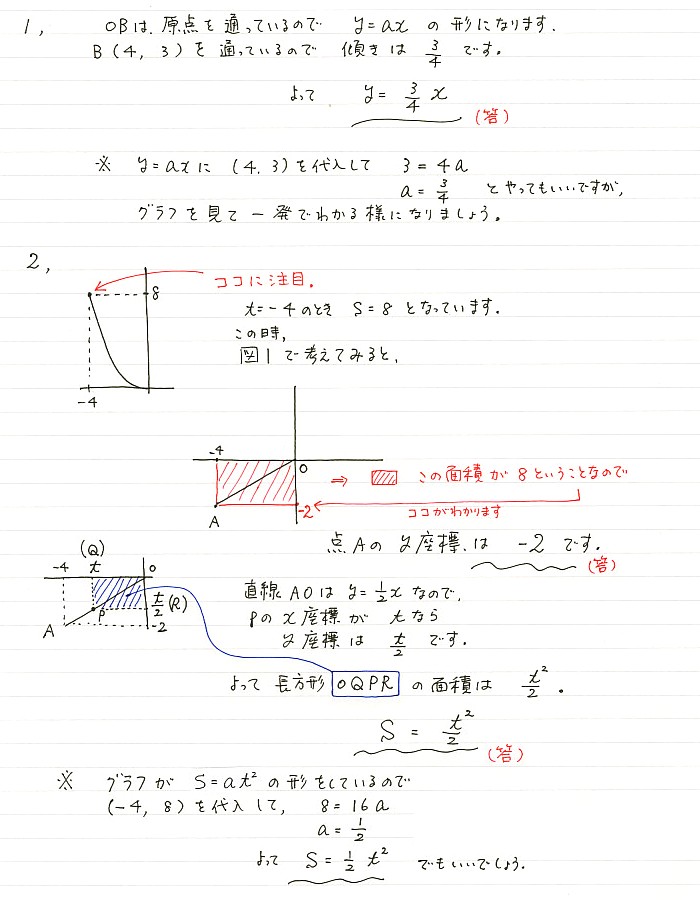 1, OBは、原点を通っているので y=ax の形になります.
B(4, 3)を通っているので 傾きは 3/4 です.
よって y= 3/4 x
(答)
※ y=axに (4, 3)を代入して 3 = 4a
a = 3/4 とやってもいいですが,
グラフを見て一発でわかる様になりましょう。
2,
ココに注目.
8
t=-4のとき S=8 となっています.
この時,
図1で考えてみると,
-4
-4
O
⇒ この面積が8ということなので
-2
ココがわかります
A
点Aのy座標は -2 です.
(答)
(Q)
-4 t O
直線AOは y=1/2x なので,
P t/2 (R)
Pのx座標が tなら
A -2
y座標は t/2 です.
よって 長方形 OQPR の面積は t²/2 .
S = t²/2
(答)
※ グラフが S=at² の形をしているので
(-4, 8)を代入して, 8=16a
a=1/2
よって S=1/2 t² でもいいでしょう.